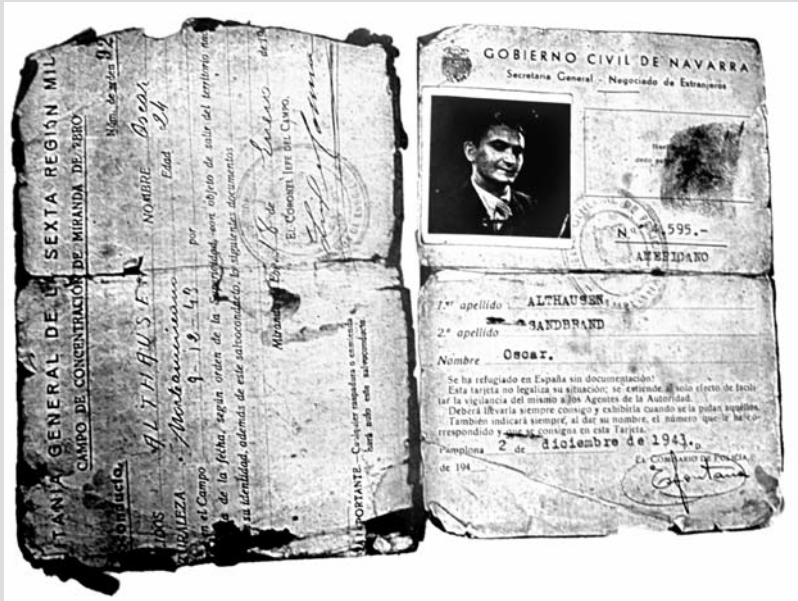 TANIA GENERAL DE LA SEXTA REGION MIL
CAMPO DE CONCENTRACION DE MIRANDA DE EBRO
Núm. de orden 92
conducto
IDOS ALTHAUSEN NOMBRE Oscar
URALEZA Norteamericano Edad 24
en el Campo 9-12-43 por
a de la fecha, según orden de la Superioridad, con objeto de salir del territorio nac
su identidad, además de este salvoconducto, los siguientes documentos
Miranda Ebro, 18 de Enero de 19
EL CORONEL JEFE DEL CAMPO,
IMPORTANTE.—Cualquier raspadura o enmienda
hará nulo este salvoconducto
GOBIERNO CIVIL DE NAVARRA
Secretaría General - Negociado de Extranjeros
N.º 4.595.-
AMERICANO
1.er apellido ALTHAUSEN
2.º apellido SANDBRAND
Nombre Oscar.
Se ha refugiado en España sin documentación:
Esta tarjeta no legaliza su situación; se extiende al solo efecto de facili-
tar la vigilancia del mismo a los Agentes de la Autoridad.
Deberá llevarla siempre consigo y exhibirla cuando se la pidan aquéllos.
También indicará siempre, al dar su nombre, el número que le ha co-
rrespondido y que se consigna en esta Tarjeta.
Pamplona 2 de diciembre de 1943.
de 194
EL COMISARIO DE POLICIA,